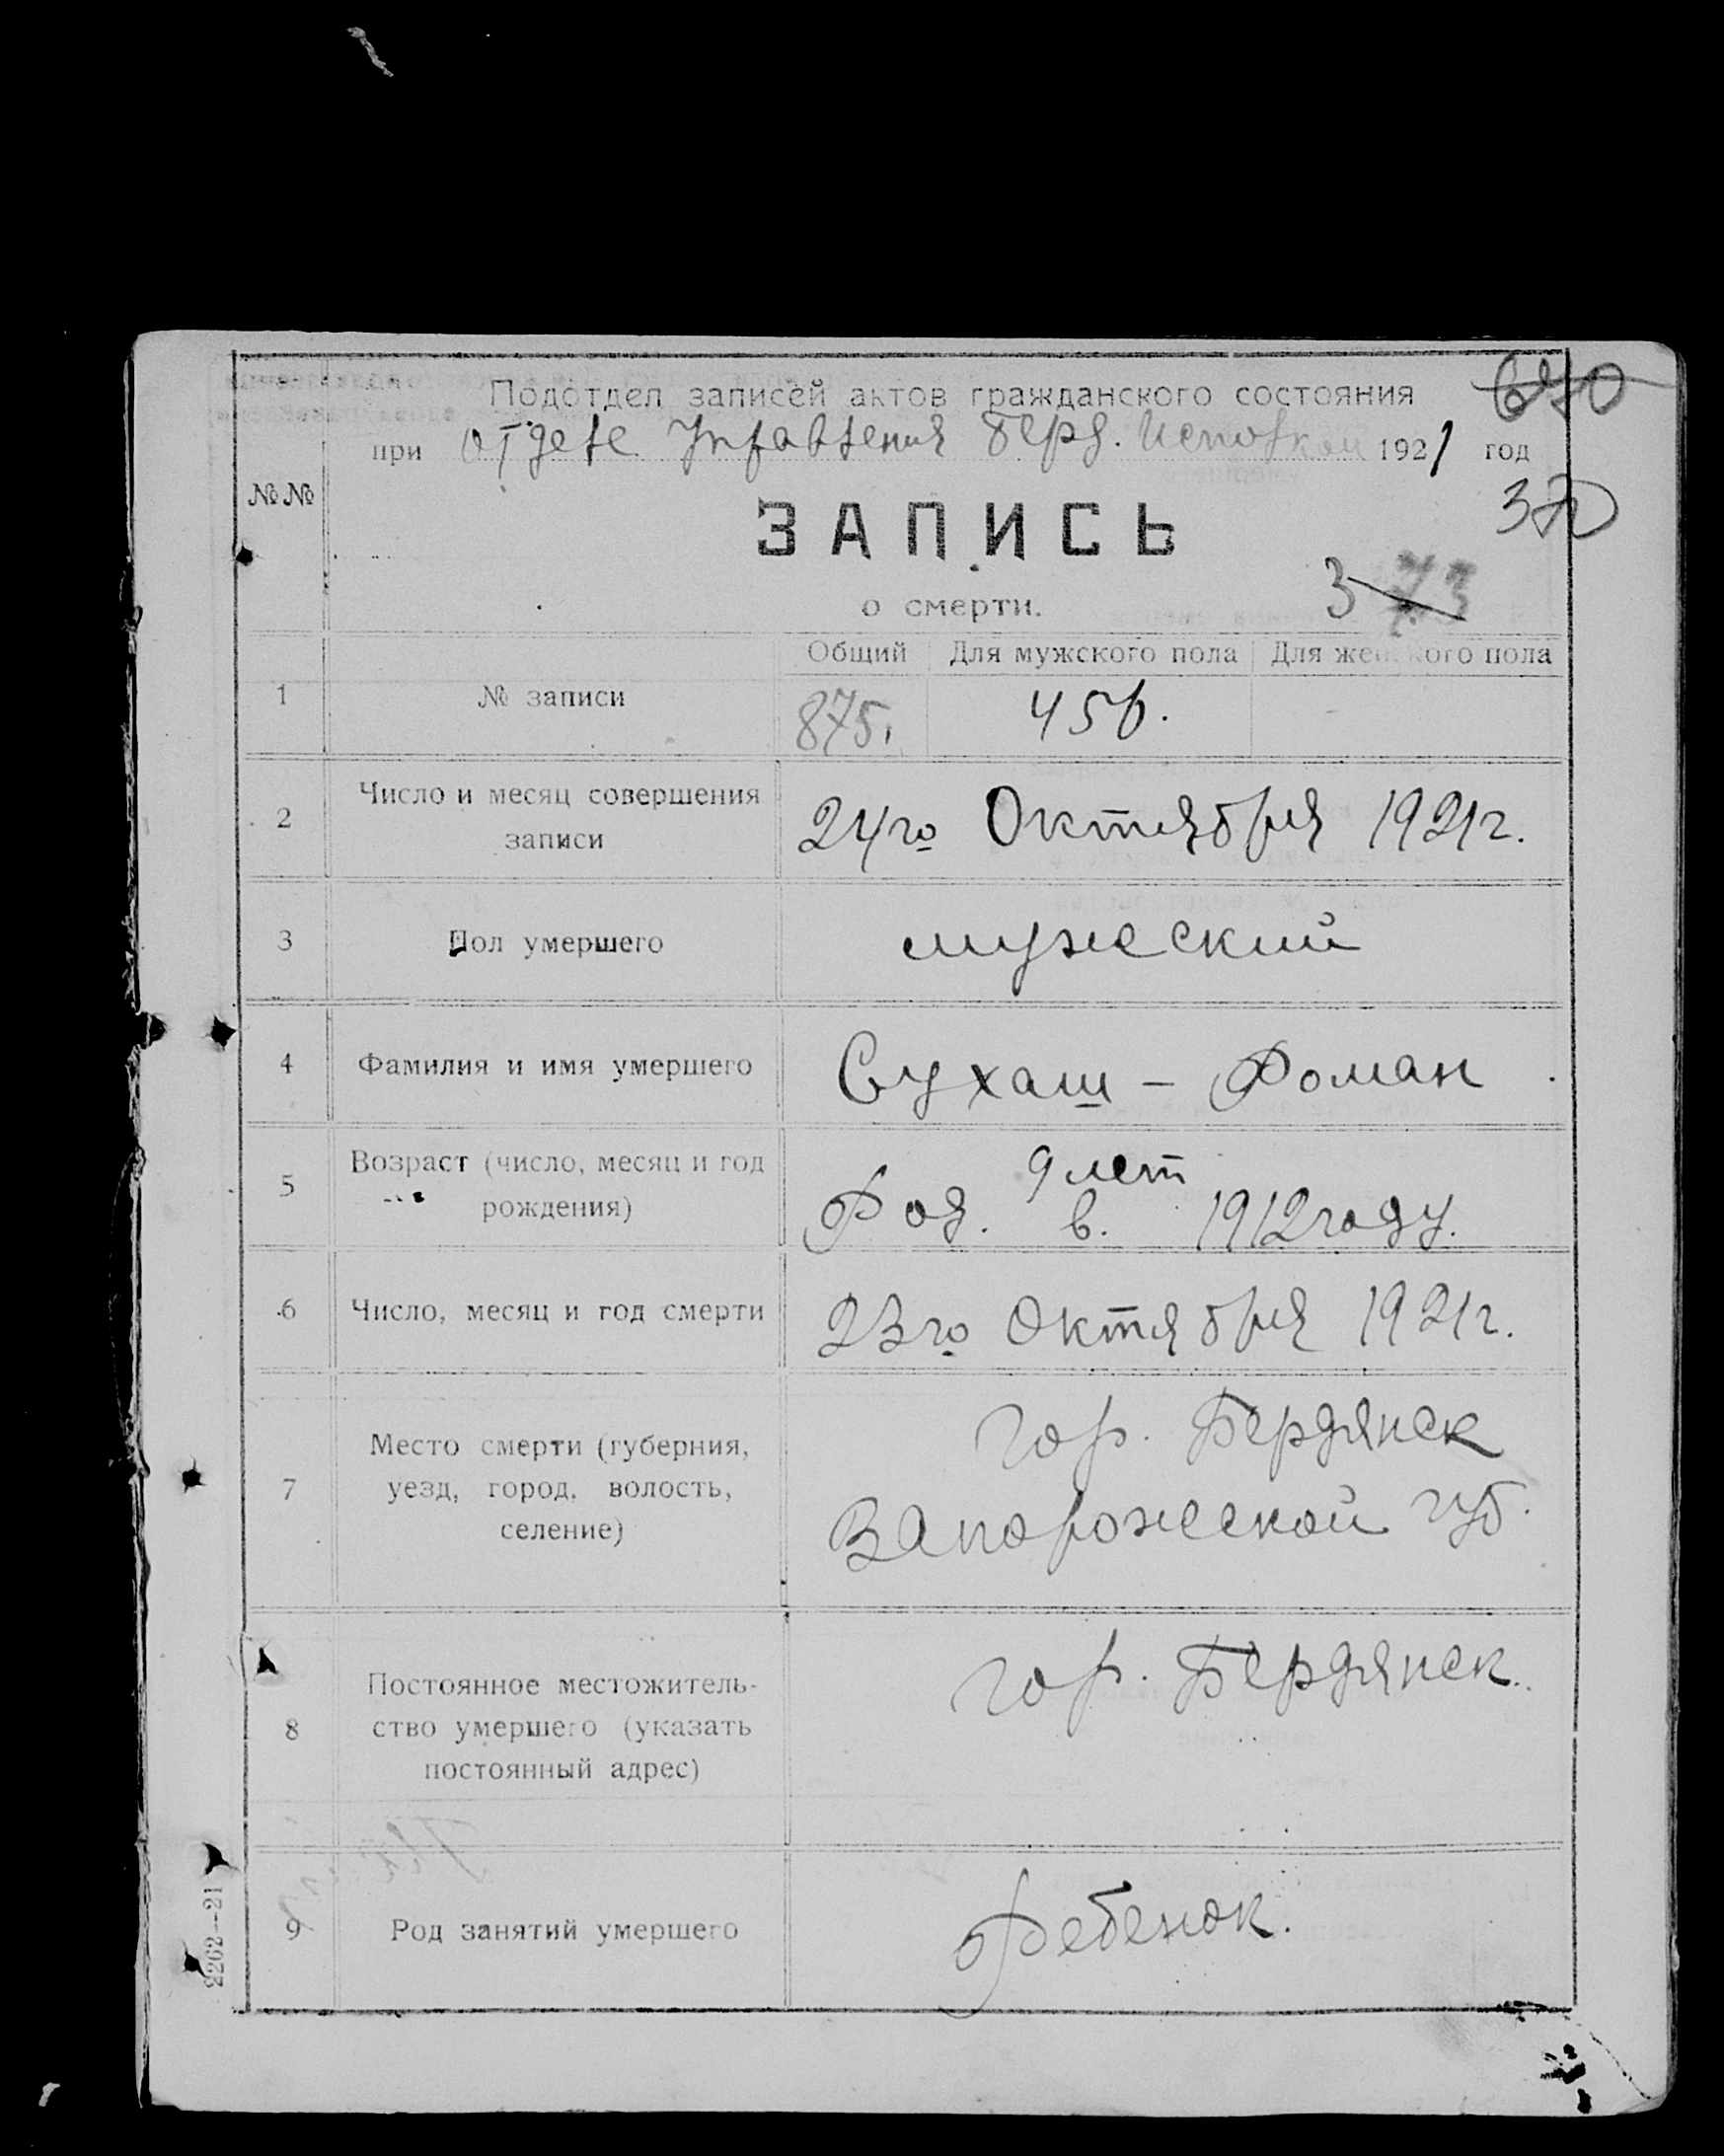 Подотдел записей актов гражданского состояния 670
при отделе Управления Берд. Исполком 1921 год
№№
370
ЗАПИСЬ
о смерти.
3 73
Общий Для мужского пола Для женского пола
1 № записи 875. 456.
2 Число и месяц совершения
записи
24го Октября 1921г.
3 Пол умершего мужеский
4 Фамилия и имя умершего Сухаш – Роман
5 Возраст (число, месяц и год
рождения)
9 лет
Род. в. 1912 году.
6 Число, месяц и год смерти 23го Октября 1921г.
7 Место смерти (губерния,
уезд, город, волость,
селение)
гор. Бердянск
Запорожской губ.
8 Постоянное местожитель-
ство умершего (указать
постоянный адрес)
гор. Бердянск.
9 Род занятий умершего Ребенок.
2262–21